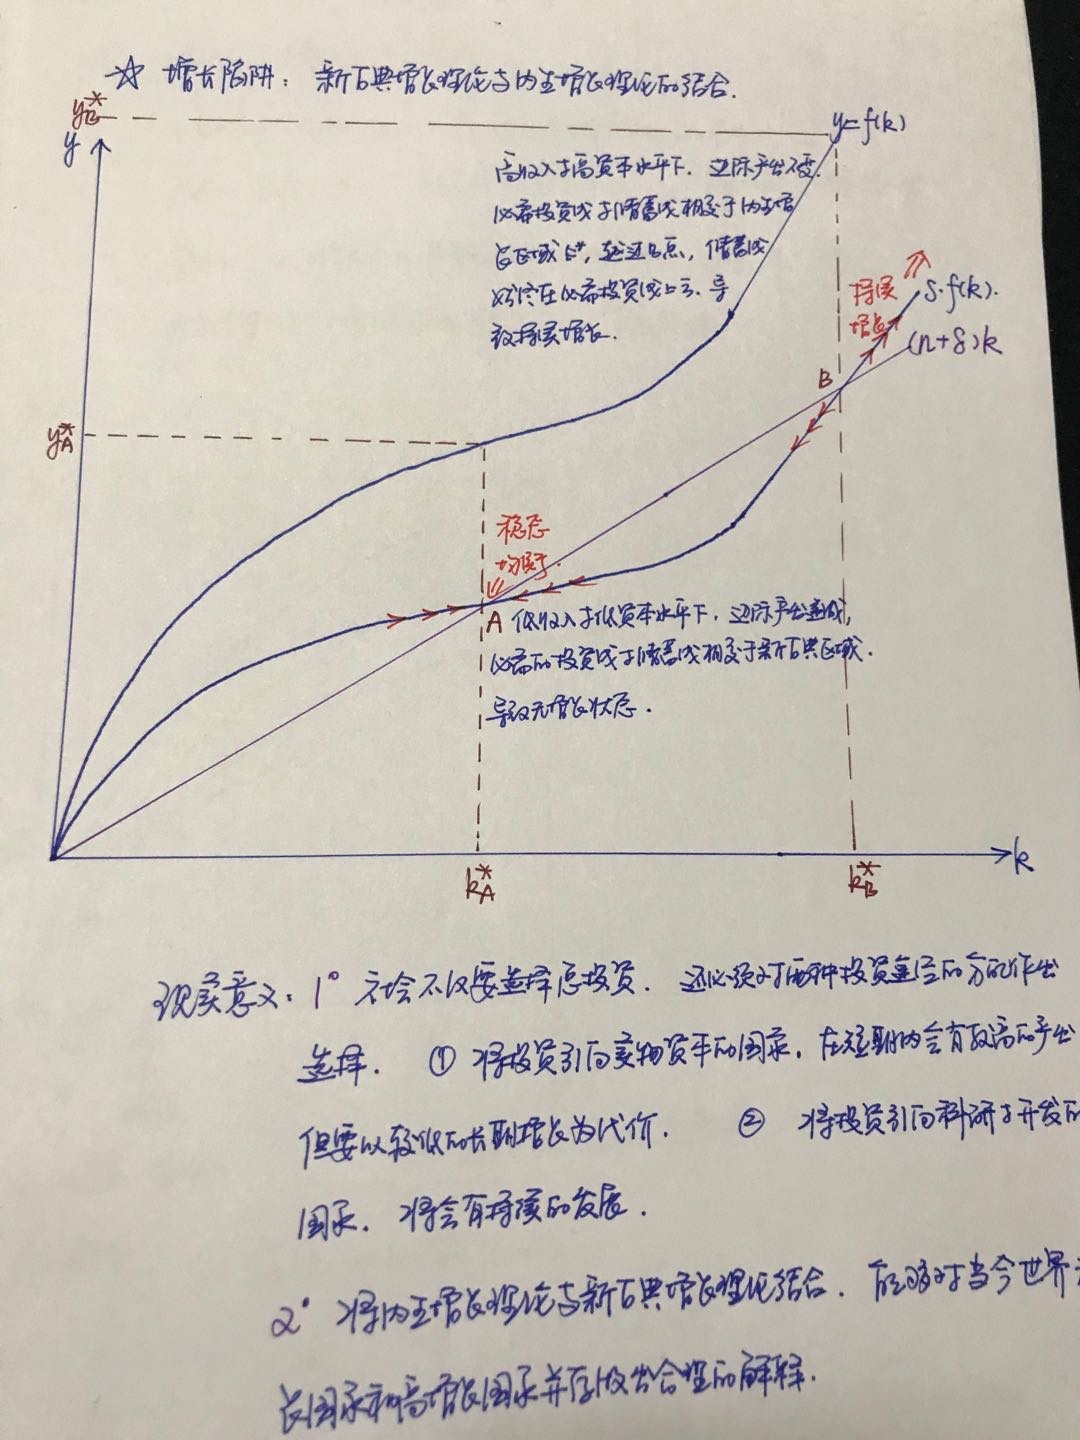 ☆ 增长陷阱：新古典增长理论与内生增长理论的结合.
y*B
y
y=f(k)
高收入与高资本水平下. 边际产出不变.
必需投资线与储蓄线相交于内生增
长区域上*, 越过B点, 储蓄线
始终在必需投资线上方. 导
致持续增长.
持续
增长
s·f(k).
(n+δ)k
B
y*A
稳态
均衡.
A 低收入与低资本水平下. 边际产出递减,
必需的投资线与储蓄线相交于新古典区域.
导致无增长状态.
k
k*A
k*B
现实意义：1° 社会不仅要选择总投资. 还必须对两种投资途径的分配作出
选择. ① 将投资引向实物资本的国家, 在短期内会有较高的产出
但要以较低的长期增长为代价. ② 将投资引向科研与开发的
国家, 将会有持续的发展.
2° 将内生增长理论与新古典增长理论结合. 能够对当今世界
长国家和高增长国家并存做出合理的解释.